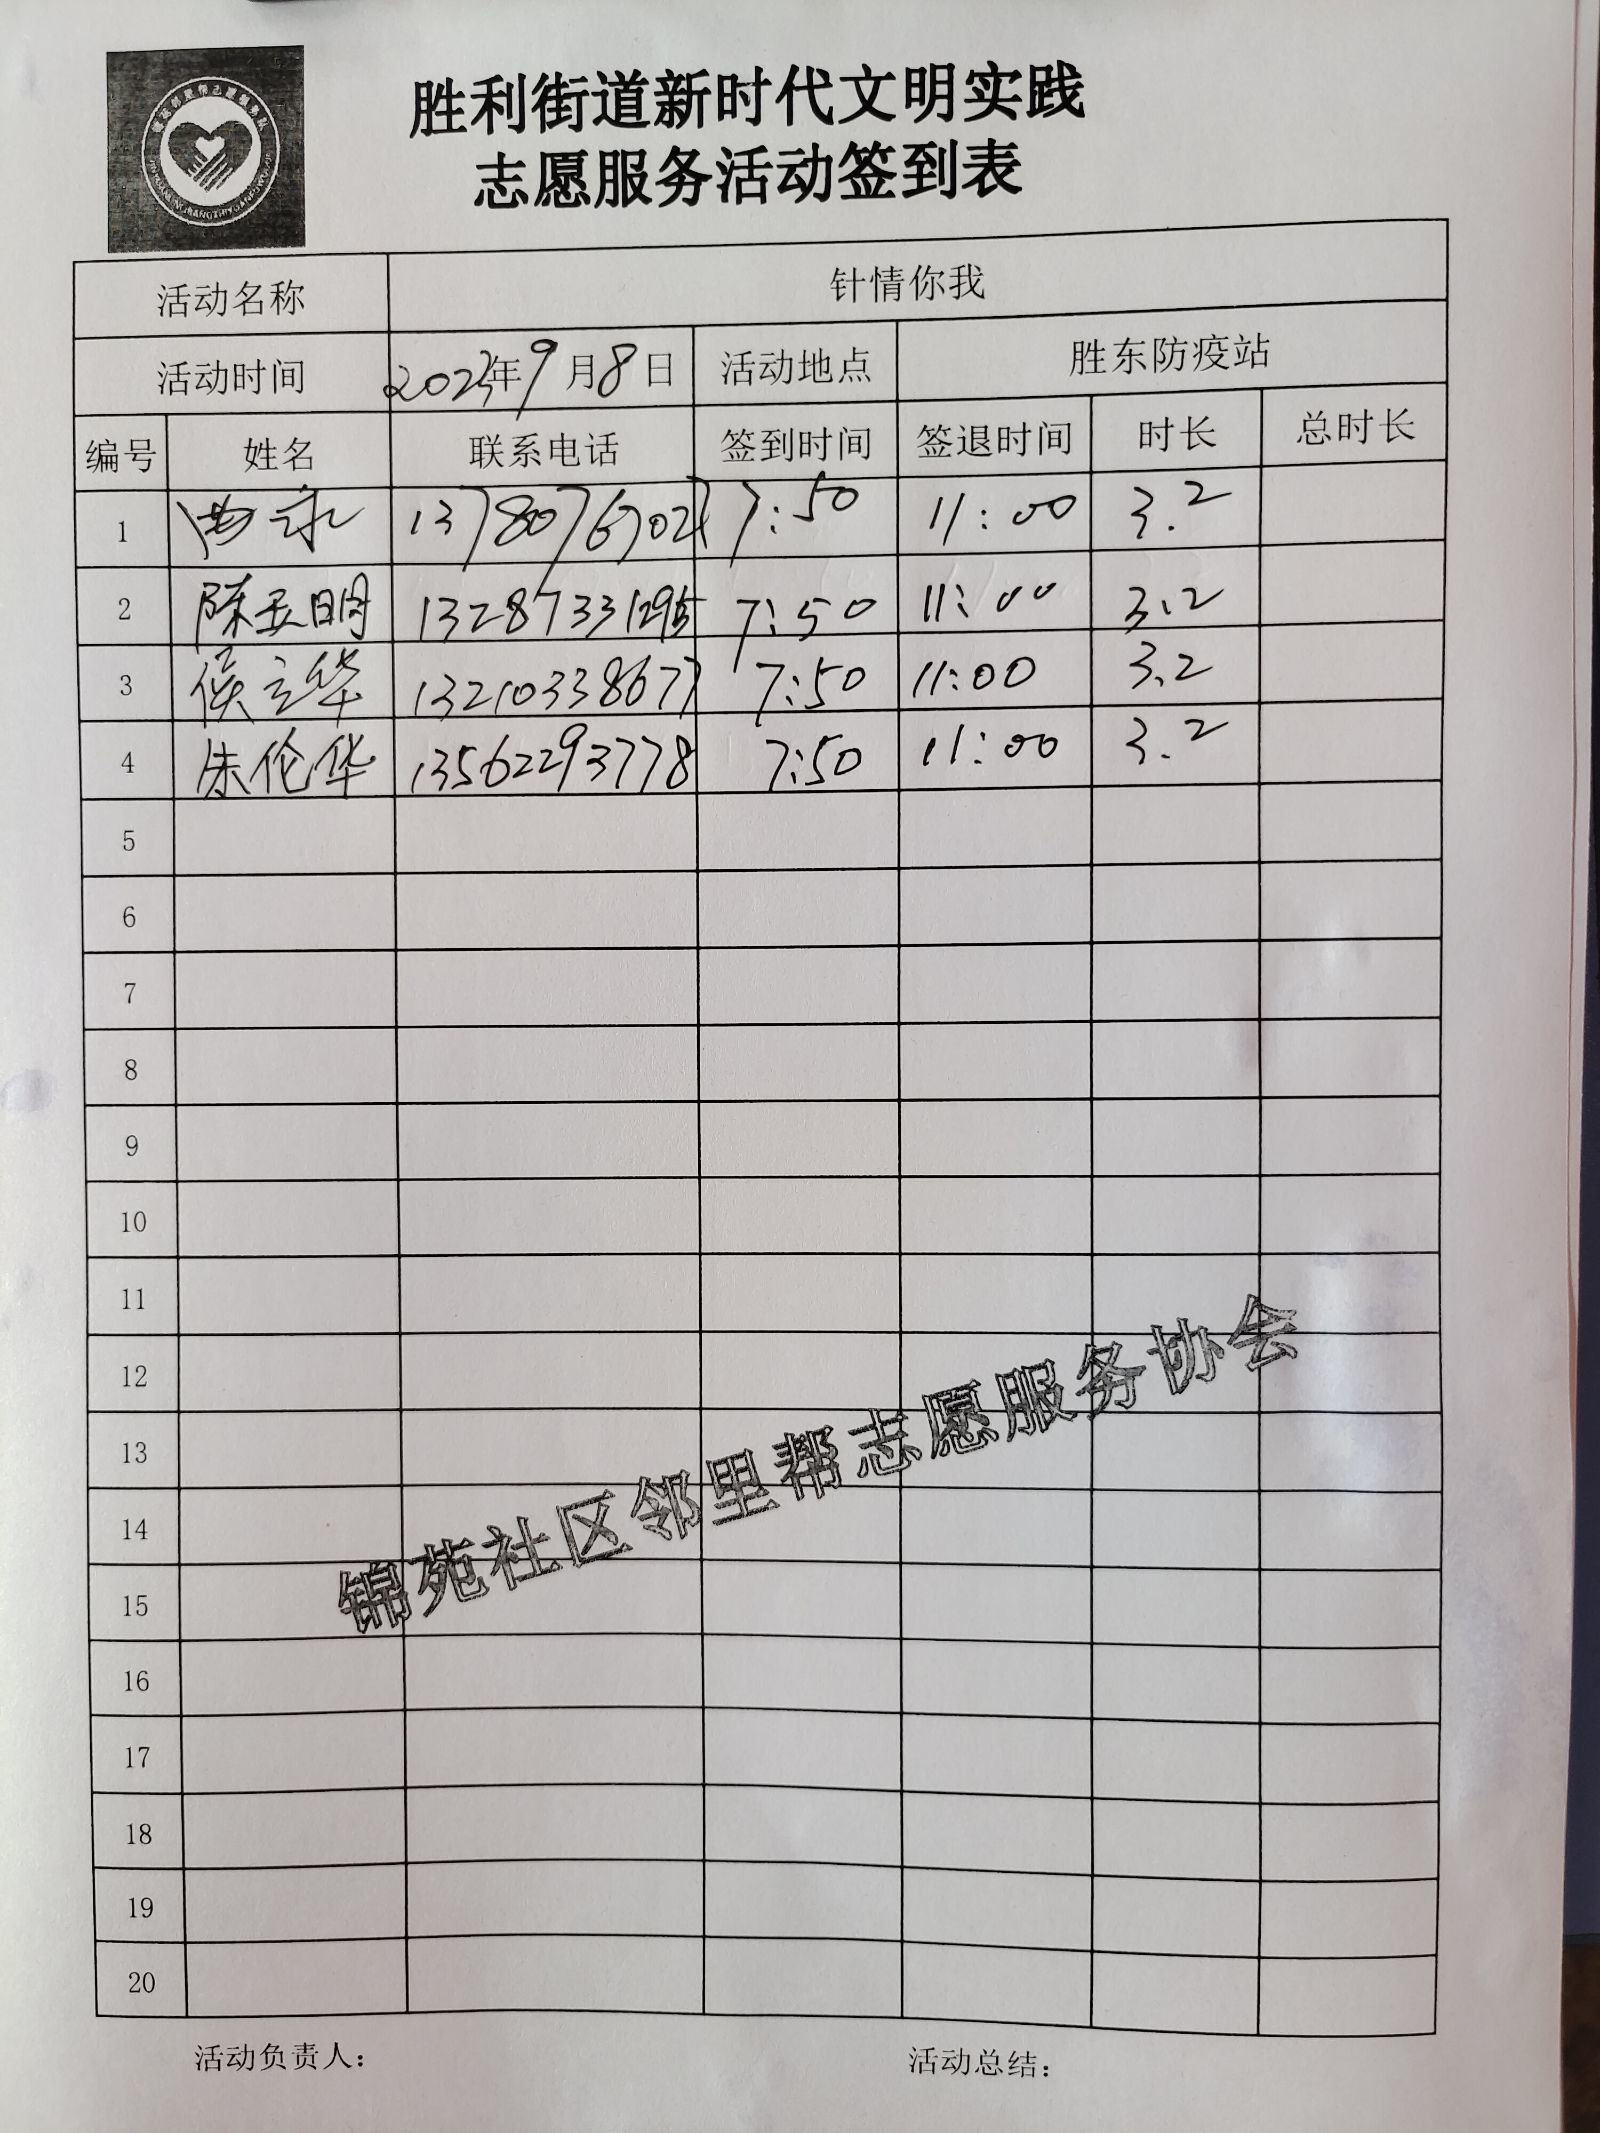 胜利街道新时代文明实践
志愿服务活动签到表
活动名称 针情你我
活动时间 2023年9月8日 活动地点 胜东防疫站
编号 姓名 联系电话 签到时间 签退时间 时长 总时长
1 7:50 11:00 3.2
2 陈玉明 13287331295 7:50 11:00 3.2
3 侯立华 13210338677 7:50 11:00 3.2
4 朱伦华 13562293778 7:50 11:00 3.2
5
6
7
8
9
10
11
12
13
14
15
16
17
18
19
20
锦苑社区邻里帮志愿服务协会
活动负责人： 活动总结：